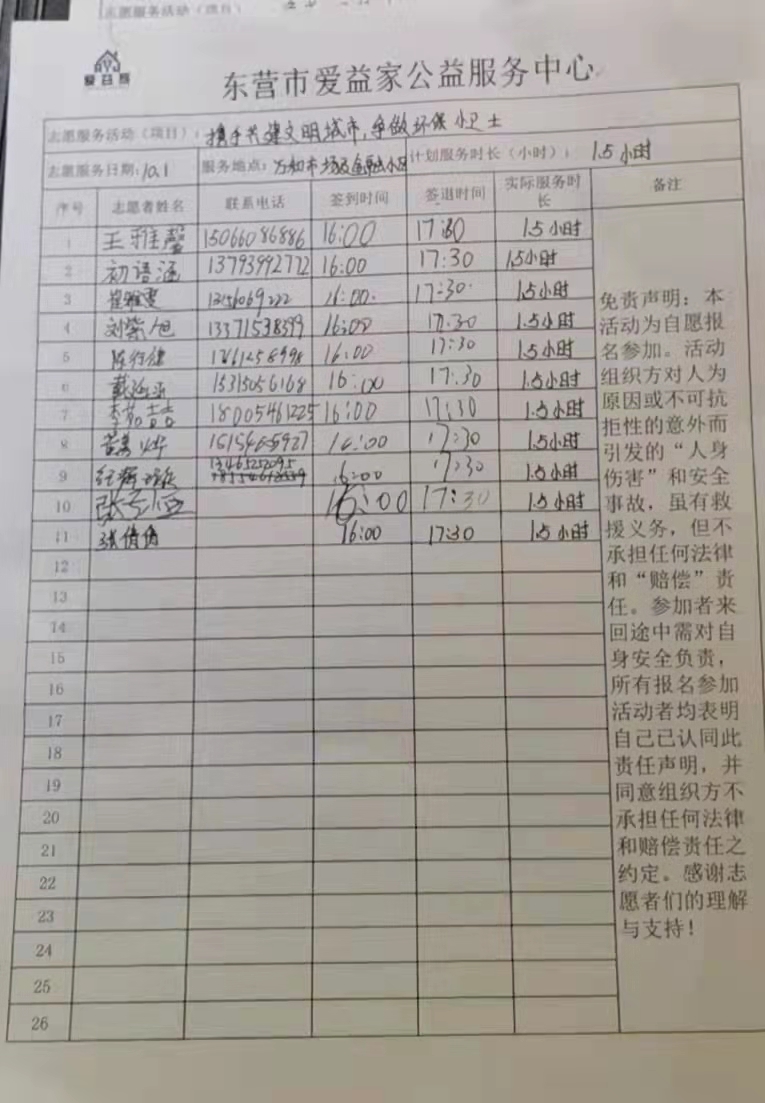 志愿服务活动（项目）
爱益家
东营市爱益家公益服务中心
志愿服务活动（项目）：携手共建文明城市,争做环保小卫士
志愿服务日期:10.1 服务地点: 计划服务时长（小时）：1.5小时
序号 志愿者姓名 联系电话 签到时间 签退时间 实际服务时长 备注
1 王雅馨 15066086886 16:00 17:30 1.5小时
2 初语涵 13793992772 16:00 17:30 1.5小时
3 16:00 17:30 1.5小时
4 刘紫旭 13371538599 16:00 17:30 1.5小时
5 16:00 17:30 1.5小时
6 16:00 17:30 1.5小时
7 18005461225 16:00 17:30 1.5小时
8 16:00 17:30 1.5小时
9 16:00 17:30 1.5小时
10 16:00 17:30 1.5小时
11 张倩倩 16:00 17:30 1.5小时
12
13
14
15
16
17
18
19
20
21
22
23
24
25
26
免责声明：本
活动为自愿报
名参加。活动
组织方对人为
原因或不可抗
拒性的意外而
引发的“人身
伤害”和安全
事故，虽有救
援义务，但不
承担任何法律
和“赔偿”责
任。参加者来
回途中需对自
身安全负责，
所有报名参加
活动者均表明
自己已认同此
责任声明，并
同意组织方不
承担任何法律
和赔偿责任之
约定。感谢志
愿者们的理解
与支持！